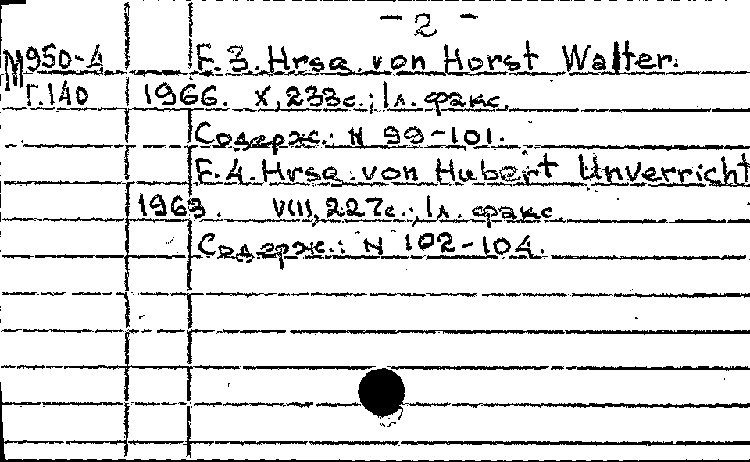 - 2 -
М950-4 F. 3. Hrsg. von Horst Walter.
Г.140 1966. X, 233с.; 1л. факс.
Содерж.: N 99-101.
F. 4. Hrsg. von Hubert Unverricht
1963. VIII, 227с.; 1л. факс.
Содерж.: N 102-104.